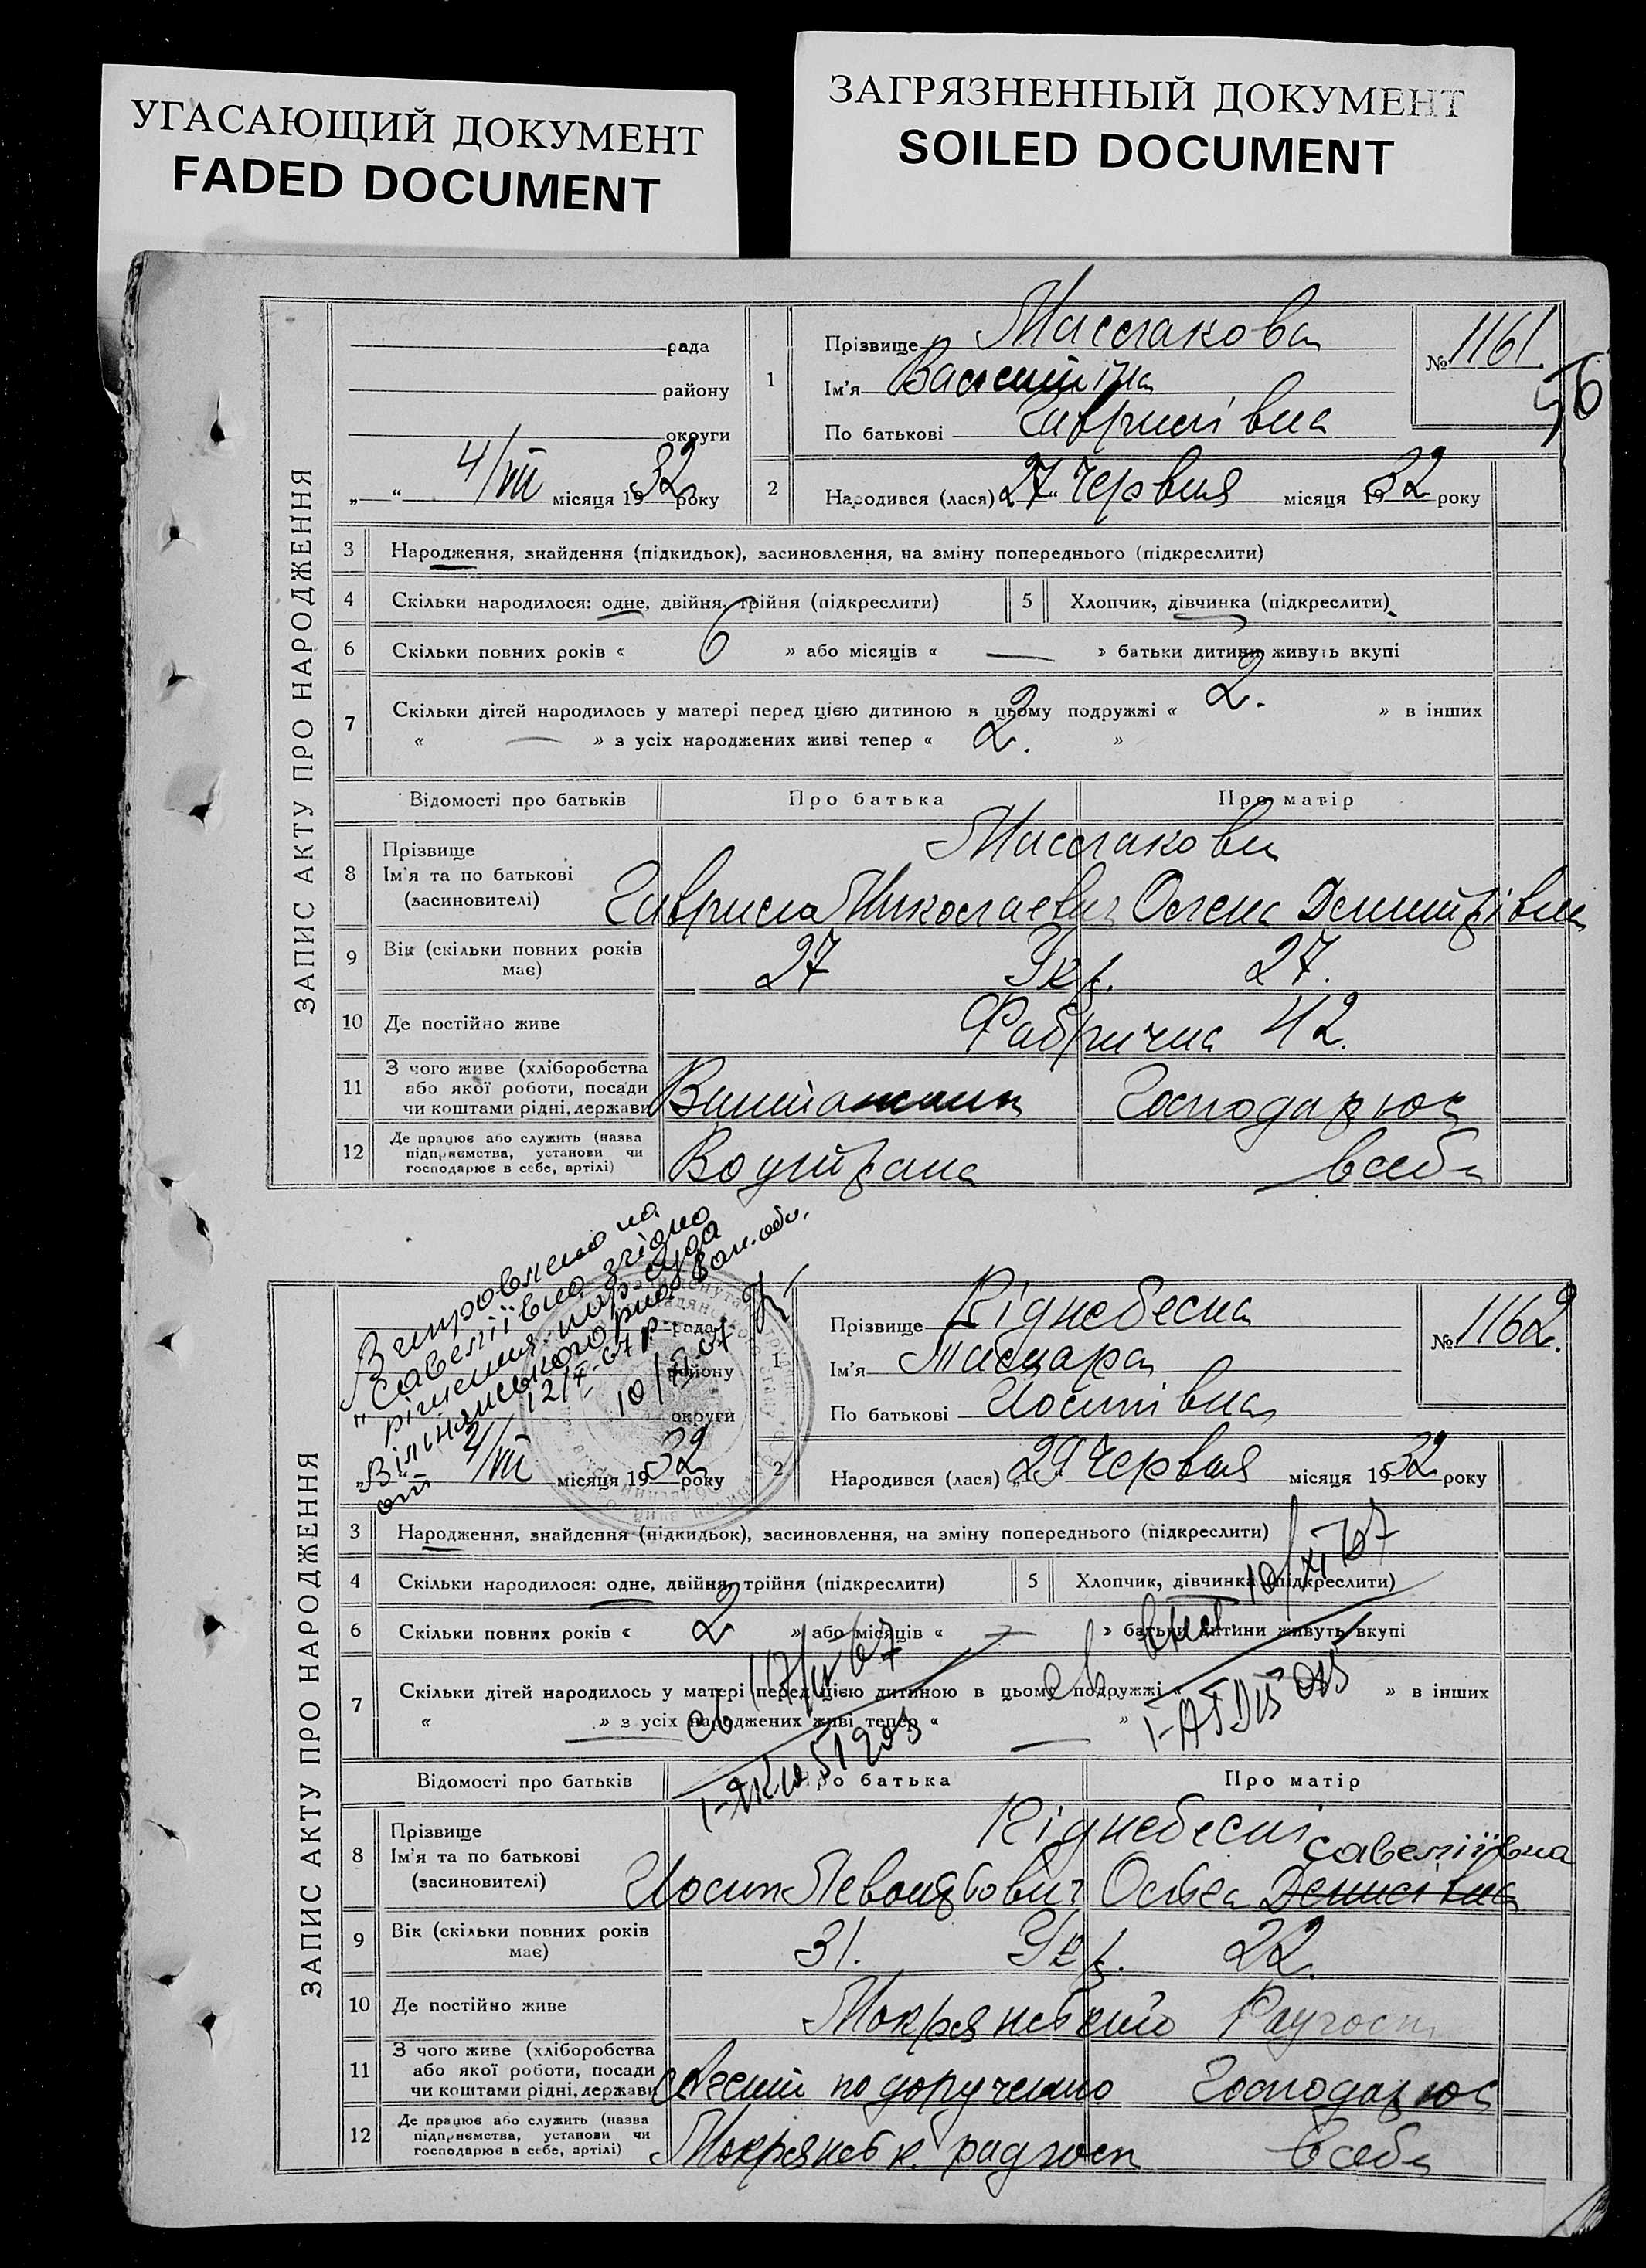 УГАСАЮЩИЙ ДОКУМЕНТ
FADED DOCUMENT
ЗАГРЯЗНЕННЫЙ ДОКУМЕНТ
SOILED DOCUMENT
ЗАПИС АКТУ ПРО НАРОДЖЕННЯ
рада
району
округи
„ “ 4/VII місяця 1932 року
1 Прізвище Маслакова
Ім'я
По батькові Гаврилівна
№ 1161.
56
2 Народився (лася) 27 Червня місяця 1932 року
3 Народження, знайдення (підкидьок), засиновлення, на зміну попереднього (підкреслити)
4 Скільки народилося: одне, двійня, трійня (підкреслити) 5 Хлопчик, дівчинка (підкреслити)
6 Скільки повних років « 6 » або місяців « — » батьки дитини живуть вкупі
7 Скільки дітей народилось у матері перед цією дитиною в цьому подружжі « 2. » в інших
« — » з усіх народжених живі тепер « 2. »
Відомості про батьків Про батька Про матір
8 Прізвище Маслакови
Ім'я та по батькові
(засиновителі) Гаврило Николаевич Олена Дмитрівна
9 Вік (скільки повних років має) 27 Укр. 27.
10 Де постійно живе Фабрична 42.
11 З чого живе (хліборобства
або якої роботи, посади
чи коштами рідні, держави Господарює
12 Де працює або служить (назва
підприємства, установи чи
господарює в себе, артілі) в себе
Виправлено на
"Савеліївна згідно
рішення нар суда
Вільнянського р-на Зап. обл.
от 12/X-67 р.
10/XI-67
ЗАПИС АКТУ ПРО НАРОДЖЕННЯ
рада
району
округи
„ 4/VII місяця 1932 року
1 Прізвище Піднебесна
Ім'я Тамара
По батькові Иосипівна
№ 1162.
2 Народився (лася) 29 Червня місяця 1932 року
3 Народження, знайдення (підкидьок), засиновлення, на зміну попереднього (підкреслити)
4 Скільки народилося: одне, двійня, трійня (підкреслити) 5 Хлопчик, дівчинка (підкреслити)
10/XI 67
6 Скільки повних років « 2 » або місяців « — » батьки дитини живуть вкупі
7 Скільки дітей народилось у матері перед цією дитиною в цьому подружжі « » в інших
« — » з усіх народжених живі тепер « — »
Відомості про батьків Про батька Про матір
8 Прізвище Піднебесні
Савеліївна
Ім'я та по батькові
(засиновителі) Иосип Денисівна
9 Вік (скільки повних років має) 31. Укр. 22.
10 Де постійно живе Радгосп
11 З чого живе (хліборобства
або якої роботи, посади
чи коштами рідні, держави Господарює
12 Де працює або служить (назва
підприємства, установи чи
господарює в себе, артілі) радгосп в себе